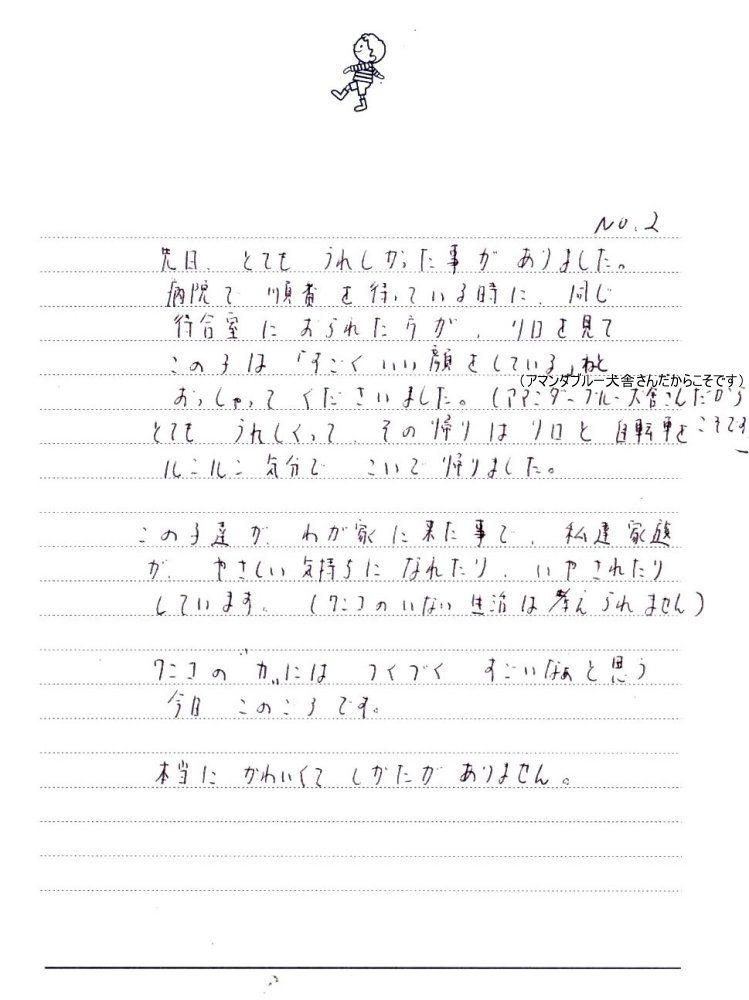 No.2
先日、とても うれしかった事が ありました。
病院で 順番を待っている時に、同じ
待合室に おられた方が、リロを見て
この子は「すごくいい顔をしている」ねと
(アマンダブルー犬舎さんだからこそです)
おっしゃって くださいました。(アマンダーブルー犬舎さんだから
こそです
とても うれしくって その帰りは リロと 自転車を
ルンルン気分で こいで帰りました。
この子達が、わが家に来た事で、私達家族
が、やさしい気持ちに なれたり、いやされたり
しています。(ワンコのいない生活は考えられません)
ワンコの"力"には つくづく すごいなぁと思う
今日 このころです。
本当に かわいくて しかたが ありません。